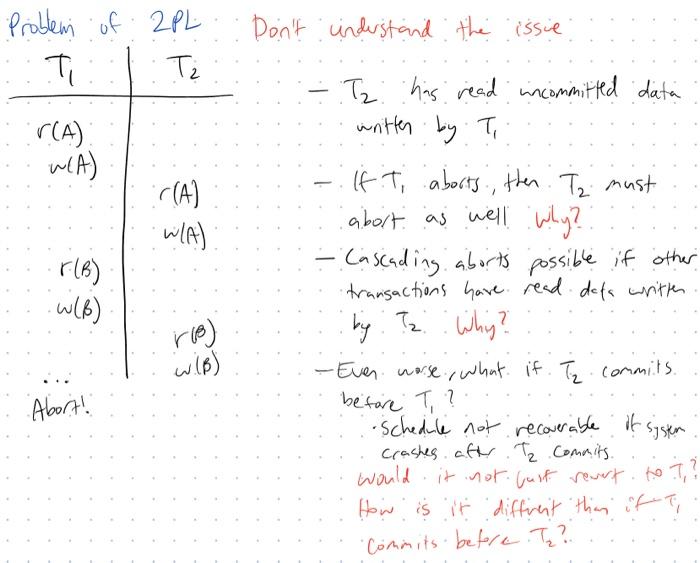 Problem of 2PL Don't understand the issue
T1 T2
r(A)
w(A)
r(A)
w(A)
r(B)
w(B)
r(B)
w(B)
...
Abort!
- T2 has read uncommitted data
written by T1
- If T1 aborts, then T2 must
abort as well Why?
- Cascading aborts possible if other
transactions have read data written
by T2 Why?
- Even worse, what if T2 commits
before T1?
• Schedule not recoverable if system
crashes after T2 commits.
would it not just revert to T1?
How is it diffrent than if T1
commits before T2?